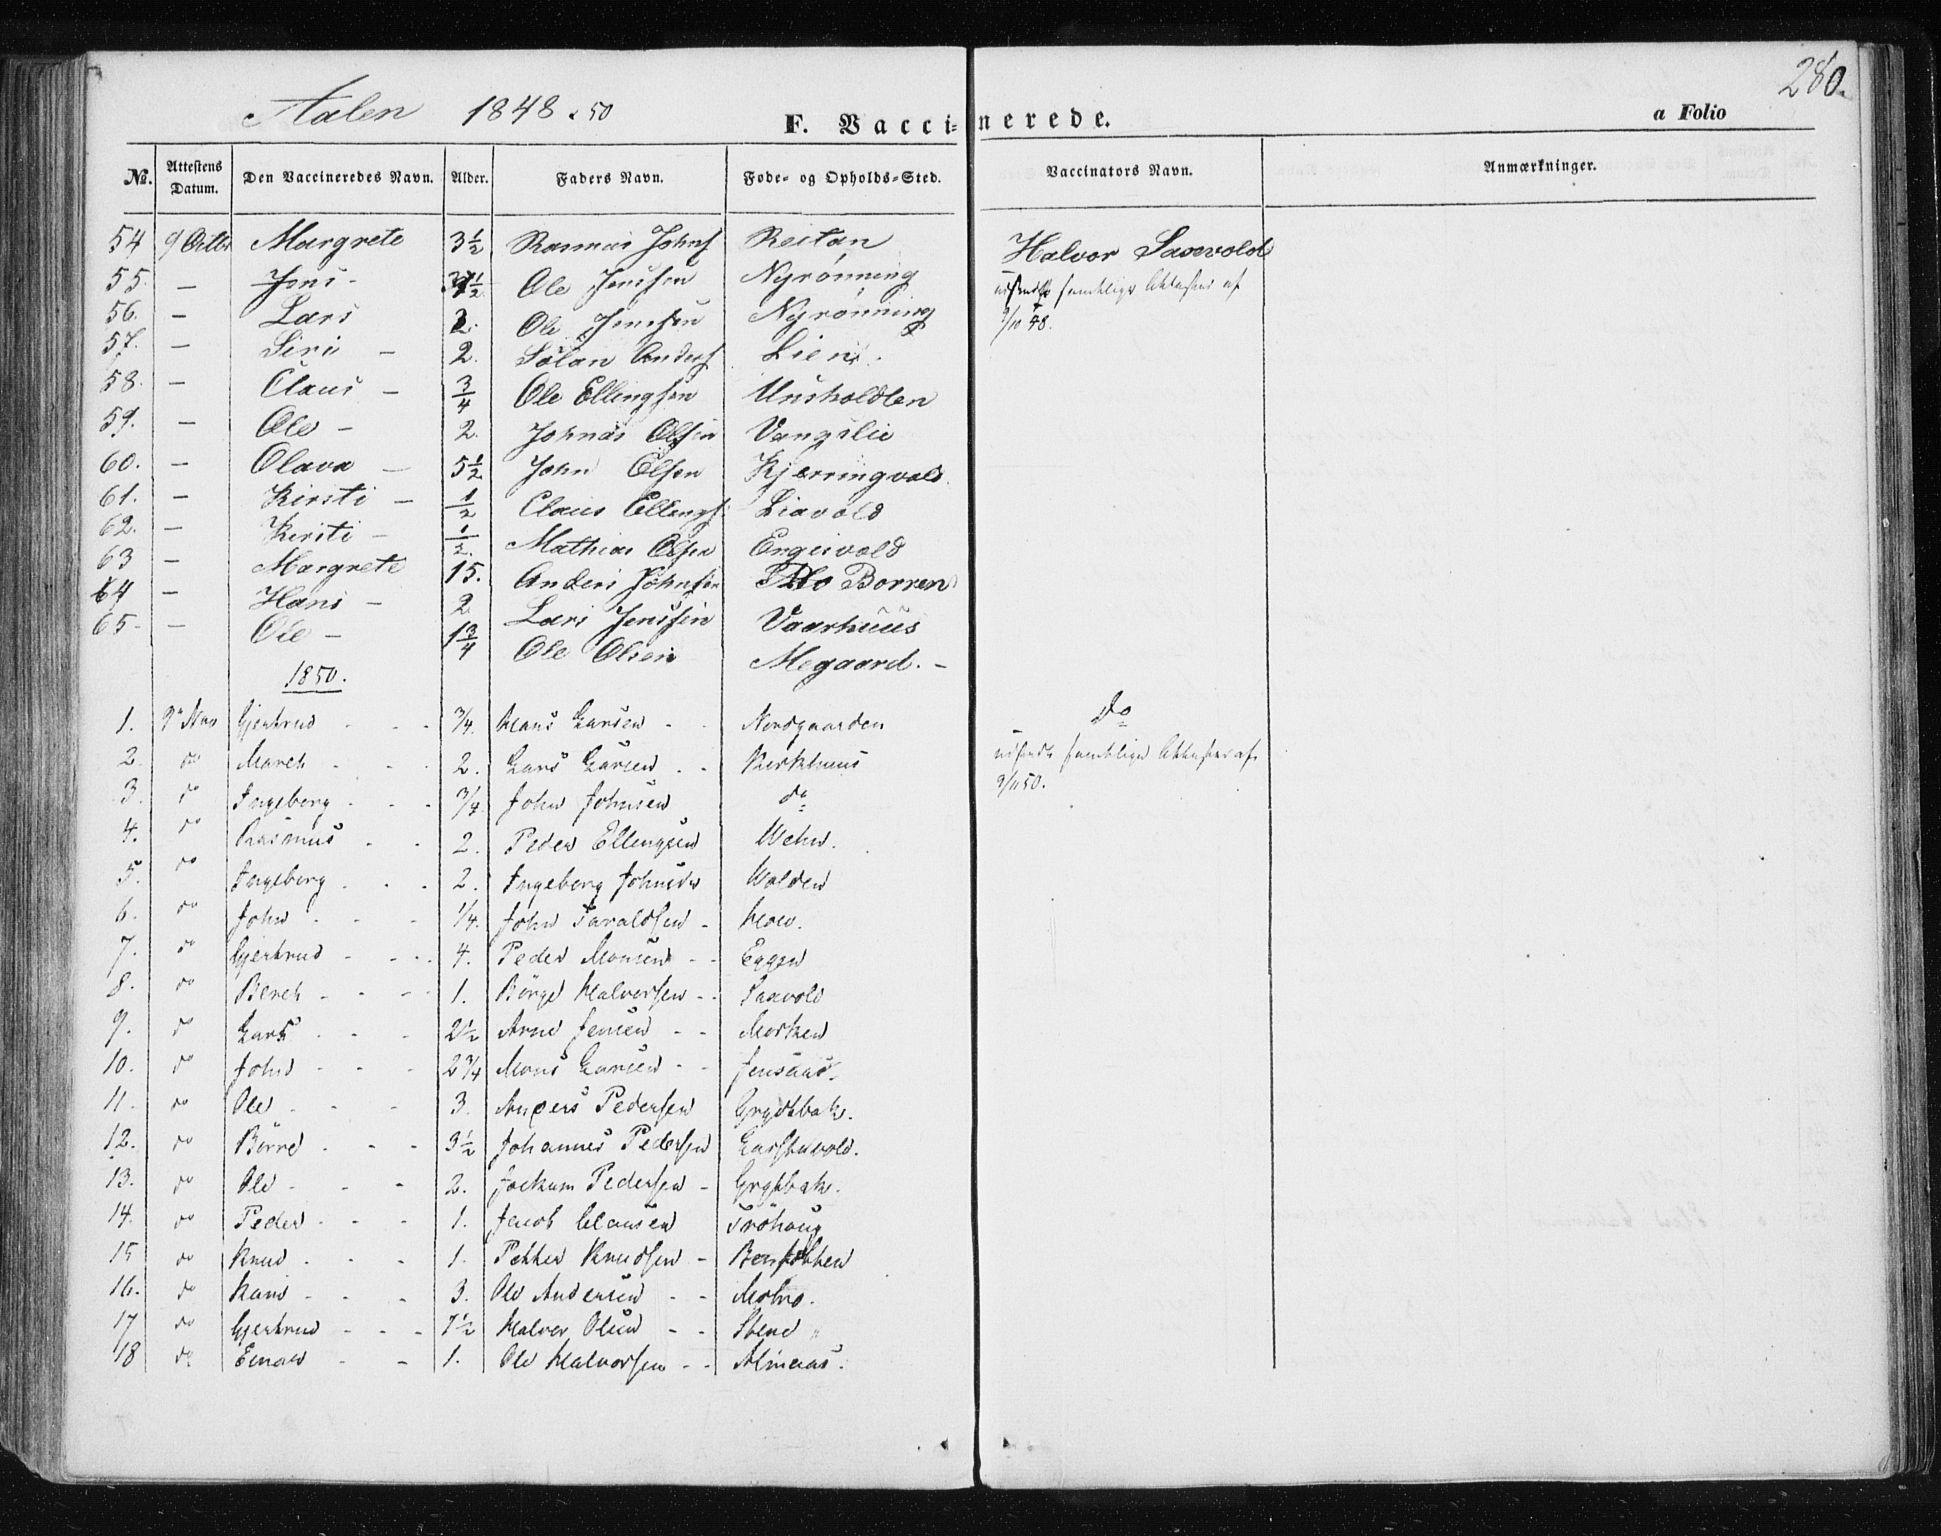 280.
Aalen 1848 & 50
F. Vaccinerede.
a Folio
No. Attestens Datum. Den Vaccineredes Navn. Alder. Faders Navn. Føde- og Opholds-Sted. Vaccinators Navn. Anmærkninger.
54 9 Octbr Margrete 3 1/2 Johns Reitan Halvor Saxevold
55. — Jens - 1/2 Ole Jenssen Nyrønning
56. — Lars 2. Ole Jenssen Nyrønning 9/10 48.
57. — Siri — 2. Anders Lien.
58. — Claus — 3/4 Ole Ellingsen Unsholdten
59. — Ole — 2. Johnas Olsen Vangslie
60. — Olava — 5 1/2 John Olsen Kjerringvold
61. — Kirsti — 1/2 Claus Ellings Liavold
62. — Kirsti — 1/2. Mathias Olsen Engesvold
63 — Margrete 15. Anders Johnsen Borren
64 — Hans — 2 Lars Jenssen Vaarhuus
65- — Ole — 1 3/4 Ole Olsen Megaard. —
1850.
1. 9de Nov Gjertrud - - - 3/4. Hans Larsen - - Nordgaarden do
2. do Mareth - - - 2. Lars Larsen - - Kirkhuus udsendte samtlige Attester af
3. do Ingeborg - - - 3/4 John Johnsen do 9/11 50.
4. do Rasmus - - 2. Peder Ellengsen Wehn.
5. do Ingeborg - - - 2. Ingeborg Johnsdr Wolden
6. do John - - - 1/4. John Taraldsen - Moen.
7. do Gjertrud - - - 4. Peder Monsen - - Eggen
8. do Bereth - - - 1. Börge Halvorsen - - Saxvold
9. do Lars - - 2 1/2 Arne Jensen - - Morken
10. do John - - - 2 3/4 Mons Larsen - - Jensaas.
11. do Ole - - - 3. Anders Pedersen Grythbak.
12. do Börre - - - 3 1/2 Johannes Pedersen
13. do Ole - - - 2. Jockum Pedersen - Grythbak.
14. do Peder - - - 1. Jacob Clausen Tröhaug
15 do Knud - - - 1. Petter Knudsen -
16. do Hans - - - 3. Ole Andersen - - Mobro.
17 do Gjertrud - - - 7 1/2 Halvor Olsen - - Stene
18 do - - 1. Ole Halvorsen - - Almaas.